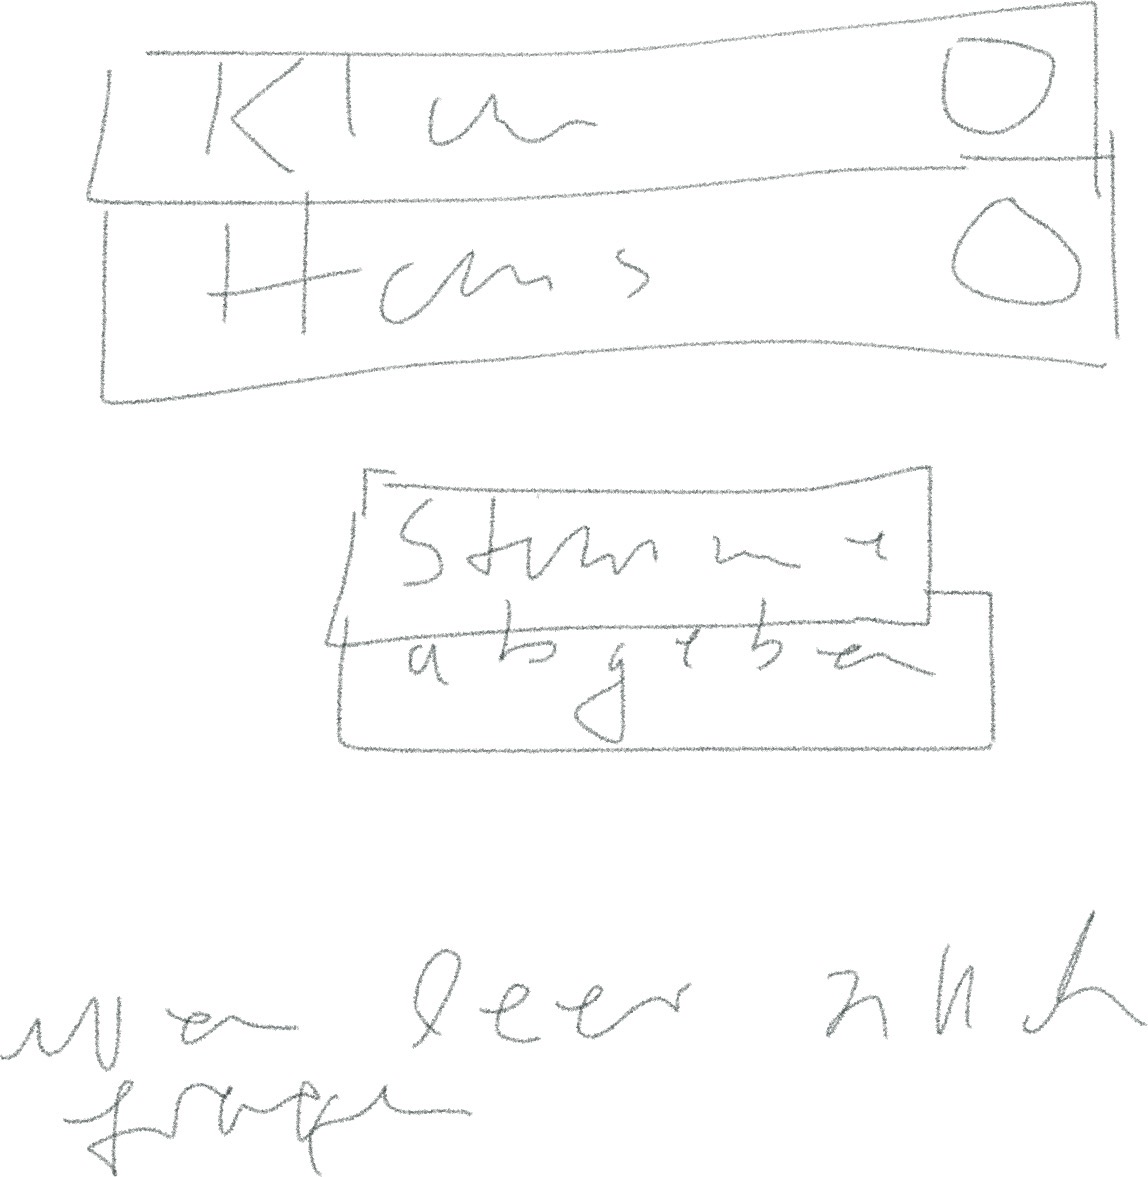 Klau
Hans
Stimme
abgeben
wen leer nach
frage